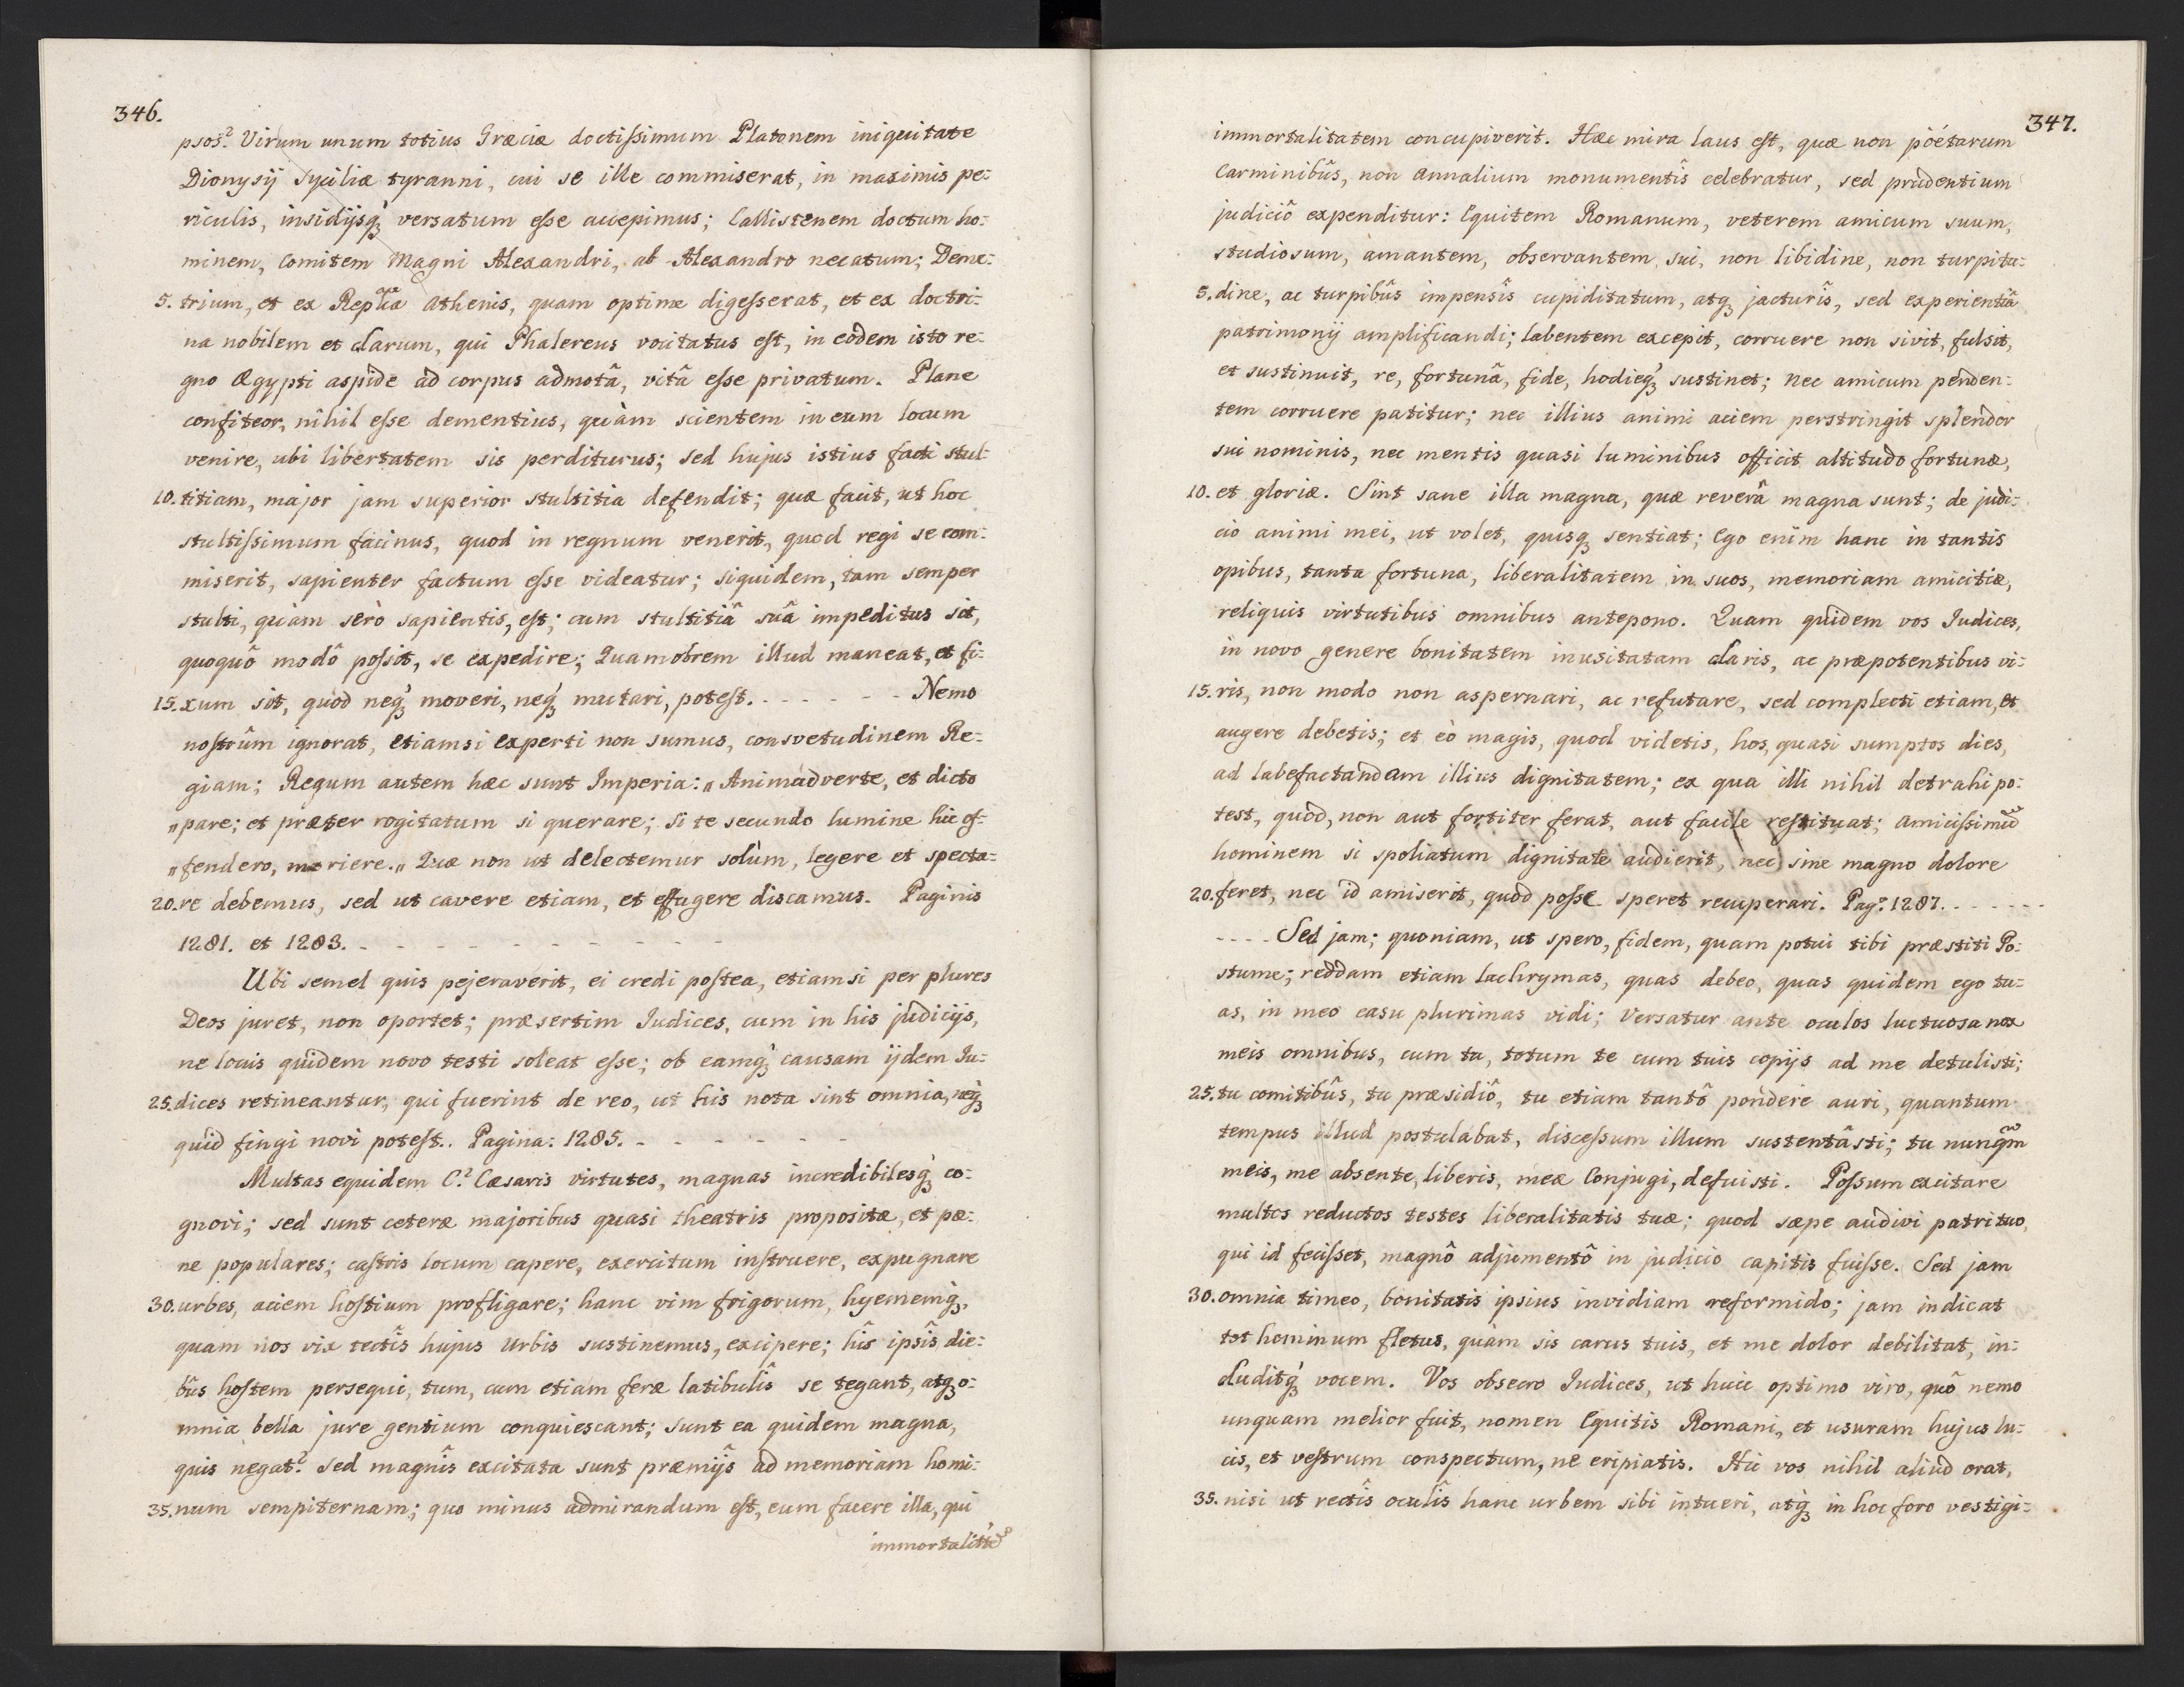 346.
psos? Virum unum totius Græciæ doctissimum Platonem iniquitate
Dionysij Syciliæ tyranni, cui se ille commiserat, in maximis pe:
riculis, insidijsq́ʒ versatum esse accepimus; Callistenem doctum ho:
minem, Comitem Magni Alexandri, ab Alexandro necatum; Deme:
5. trium, et ex Repᵘᶜᵃ Athenis, quam optime digesserat, et ex doctri:
na nobilem et clarum, qui Phalereus vocitatus est, in eodem isto re:
gno Ægypti aspide ad corpus admotâ, vitâ esse privatum. Plane
confiteor, nihil esse dementius, quàm scientem in eum locum
venire, ubi libertatem sis perditurus; sed hujus istius facti stul:
10. titiam, major jam superior stultitia defendit; quæ facit, ut hoc
stultissimum facinus, quod in regnum venerit, quod regi se com:
miserit, sapienter factum esse videatur; siquidem, tam semper
stulti, quàm serò sapientis, est; cum stultitiâ suâ impeditus sit,
quoquô modô possit, se expedire; Quamobrem illud maneat, et fi:
15. xum sit, quod neq́ʒ moveri, neq́ʒ mutari, potest. - - - - - - Nemo
nostrûm ignorat, etiamsi experti non sumus, consvetudinem Re:
giam; Regum autem hæc sunt Imperia: „Animadverte, et dicto
„pare; et præter rogitatum si querare; Si te secundo lumine hic of:
„fendero, moriere.„ Quæ non ut delectemur solùm, legere et specta:
20. re debemus, sed ut cavere etiam, et effugere discamus. Paginis
1281. et 1283. - - - - - - - - - -
Ubi semel quis pejeraverit, ei credi postea, etiamsi per plures
Deos juret, non oportet; præsertim Iudices, cum in his judicijs,
ne locus quidem novo testi soleat esse; ob eamq́ʒ causam ijdem Iu:
25. dices retineantur, qui fuerint de reo, ut his nota sint omnia, neq́ʒ
quid fingi novi potest. Pagina: 1285. - - - - - -
Multas equidem C? Cæsaris virtutes, magnas incredibilesq́ʒ co:
gnovi; sed sunt ceteræ majoribus quasi theatris propositæ, et pæ:
ne populares; castris locum capere, exercitum instruere, expugnare
30. urbes, aciem hostium profligare; hanc vim frigorum, hyememq́ʒ,
quam nos vix tectîs hujus Urbis sustinemus, excipere; hîs ipsîs die:
bus hostem persequi, tum, cum etiam feræ latibulîs se tegant, atqʒ o:
mnia bella jure gentium conquiescant; sunt ea quidem magna,
quis negat? Sed magnîs excitata sunt præmijs ad memoriam homi:
35. num sempiternam; quo minus admirandum est, eum facere illa, qui
immortalitẽ
347.
immortalitatem concupiverit. Hæc mira laus est, quæ non poétarum
Carminibûs, non Annalium monumentîs celebratur, sed prudentium
judiciô expenditur: Equitem Romanum, veterem amicum suum,
studiosum, amantem, observantem sui, non libidine, non turpitu:
5. dine, ac turpibûs impensîs cupiditatum, atqʒ jacturîs, sed experientiâ
patrimonij amplificandi; labentem excepit, corruere non sivit, fulsit,
et sustinuit, re, fortunâ, fide, hodieq́ʒ sustinet; nec amicum penden:
tem corruere patitur; nec illius animi aciem perstringit splendor
sui nominis, nec mentis quasi luminibus officit altitudo fortunæ,
10. et gloriæ. Sint sane illa magna, quæ reverâ magna sunt; de judi:
cio animi mei, ut volet, quisqʒ sentiat; Ego enim hanc in tantis
opibus, tanta fortuna, liberalitatem in suos, memoriam amicitiæ,
reliquis virtutibus omnibus antepono. Quam quidem vos Iudices,
in novo genere bonitatem inusitatam claris, ac præpotentibus vi:
15. ris, non modo non aspernari, ac refutare, sed complecti etiam, et
augere debetis; et eò magis, quod videtis, hos, quasi sumptos dies,
ad labefactandam illius dignitatem; ex qua illi nihil detrahi po:
test, quod, non aut fortiter ferat, aut facile restituat; Amicissimũ
hominem si spoliatum dignitate audierit, nec sine magno dolore
20. feret, nec id amiserit, quod posse speret recuperari. Pag? 1287. - - - - - -
- - - - Sed jam; quoniam, ut spero, fidem, quam potui tibi præstiti Po:
stume; reddam etiam lachrymas, quas debeo, quas quidem ego tu:
as, in meo casu plurimas vidi; Versatur ante oculos luctuosa nox
meis omnibus, cum tu, totum te cum tuis copijs ad me detulisti;
25. tu comitibûs, tu præsidiô, tu etiam tantô pondere auri, quantum
tempus illud postulabat, discessum illum sustentâsti; tu nunqm̃
meis, me absente, liberis, meæ Conjugi, defuisti. Possum excitare
multos reductos testes liberalitatis tuæ; quod sæpe audivi patri tuo,
qui id fecisset, magnô adjumentô in judicio capitis fuisse. Sed jam
30. omnia timeo, bonitatis ipsius invidiam reformido; jam indicat
tot hominum fletus, quàm sis carus tuis, et me dolor debilitat, in:
cluditq́ʒ vocem. Vos obsecro Iudices, ut huic optimo viro, quô nemo
unquam melior fuit, nomen Equitis Romani, et usuram hujus lu:
cis, et vestrum conspectum, ne eripiatis. Hic vos nihil aliud orat,
35. nisi ut rectîs oculîs hanc urbem sibi intueri, atq́ʒ in hoc foro vestigi: